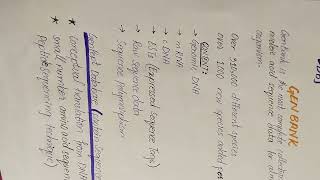 DDBJ
GENBANK
GenBank is the most complete collection
nucleic acid sequence data for
organism.
Over 380,000 different species
over 1000 new species added per
CONTENT:
→ Genomic DNA
→ mRNA
→ cDNA
→ ESTs (Expressed Sequence Tags)
→ Raw sequence data
→ Sequence Polymorphism
GenPept Database (Protein Sequence
* Conceptual translation from DNA
* small number amino acid sequence
Peptide sequencing technique)